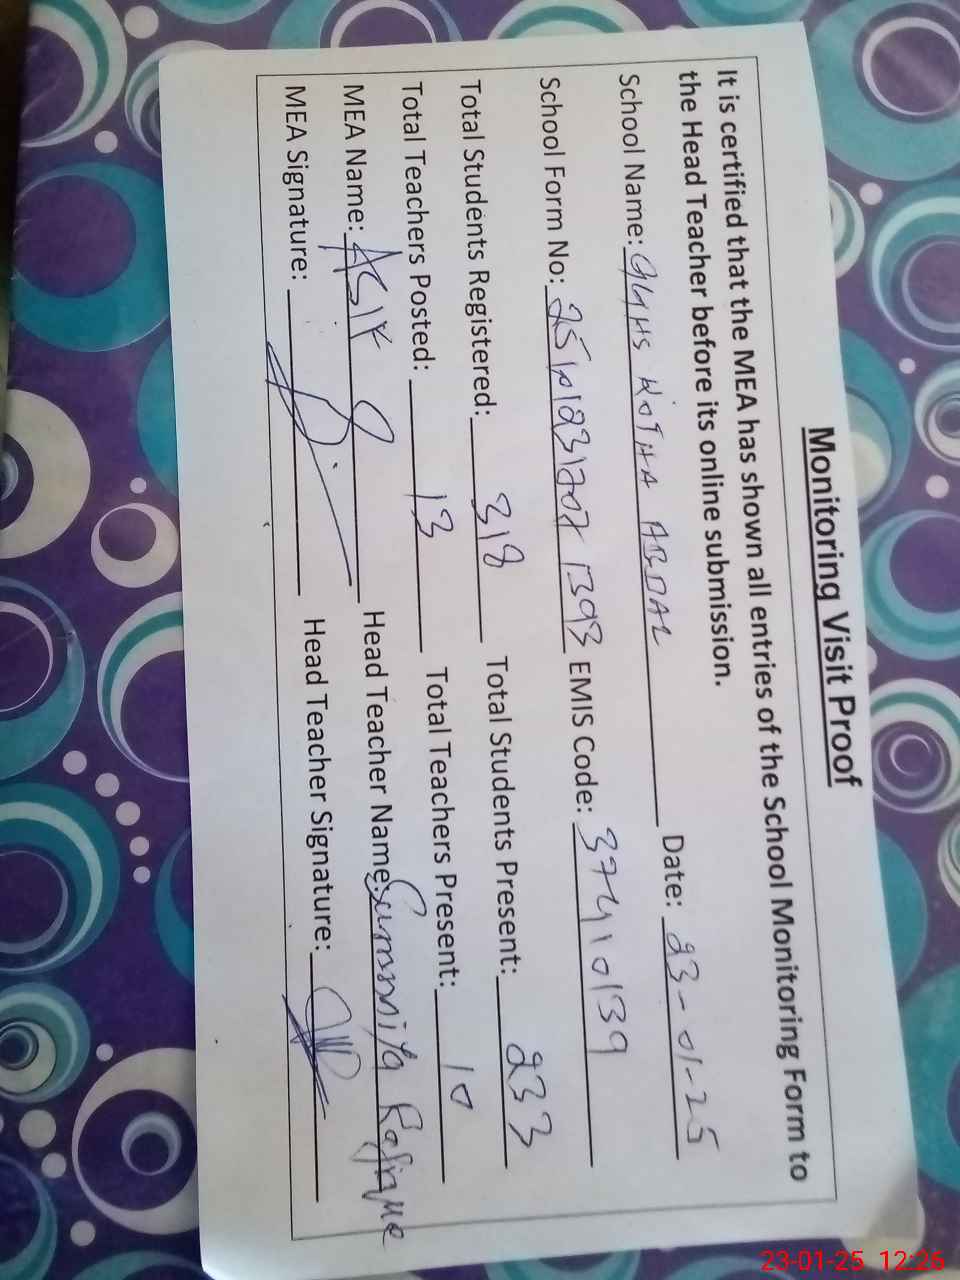 Monitoring Visit Proof
It is certified that the MEA has shown all entries of the School Monitoring Form to
the Head Teacher before its online submission.
School Name: GGHS KOTHA ABDAL Date: 23-01-25
School Form No: EMIS Code: 37410139
Total Students Registered: 318 Total Students Present: 233
Total Teachers Posted: 13 Total Teachers Present: 10
MEA Name: ASIF Head Teacher Name: Rafique
MEA Signature: Head Teacher Signature:
23-01-25 12:26